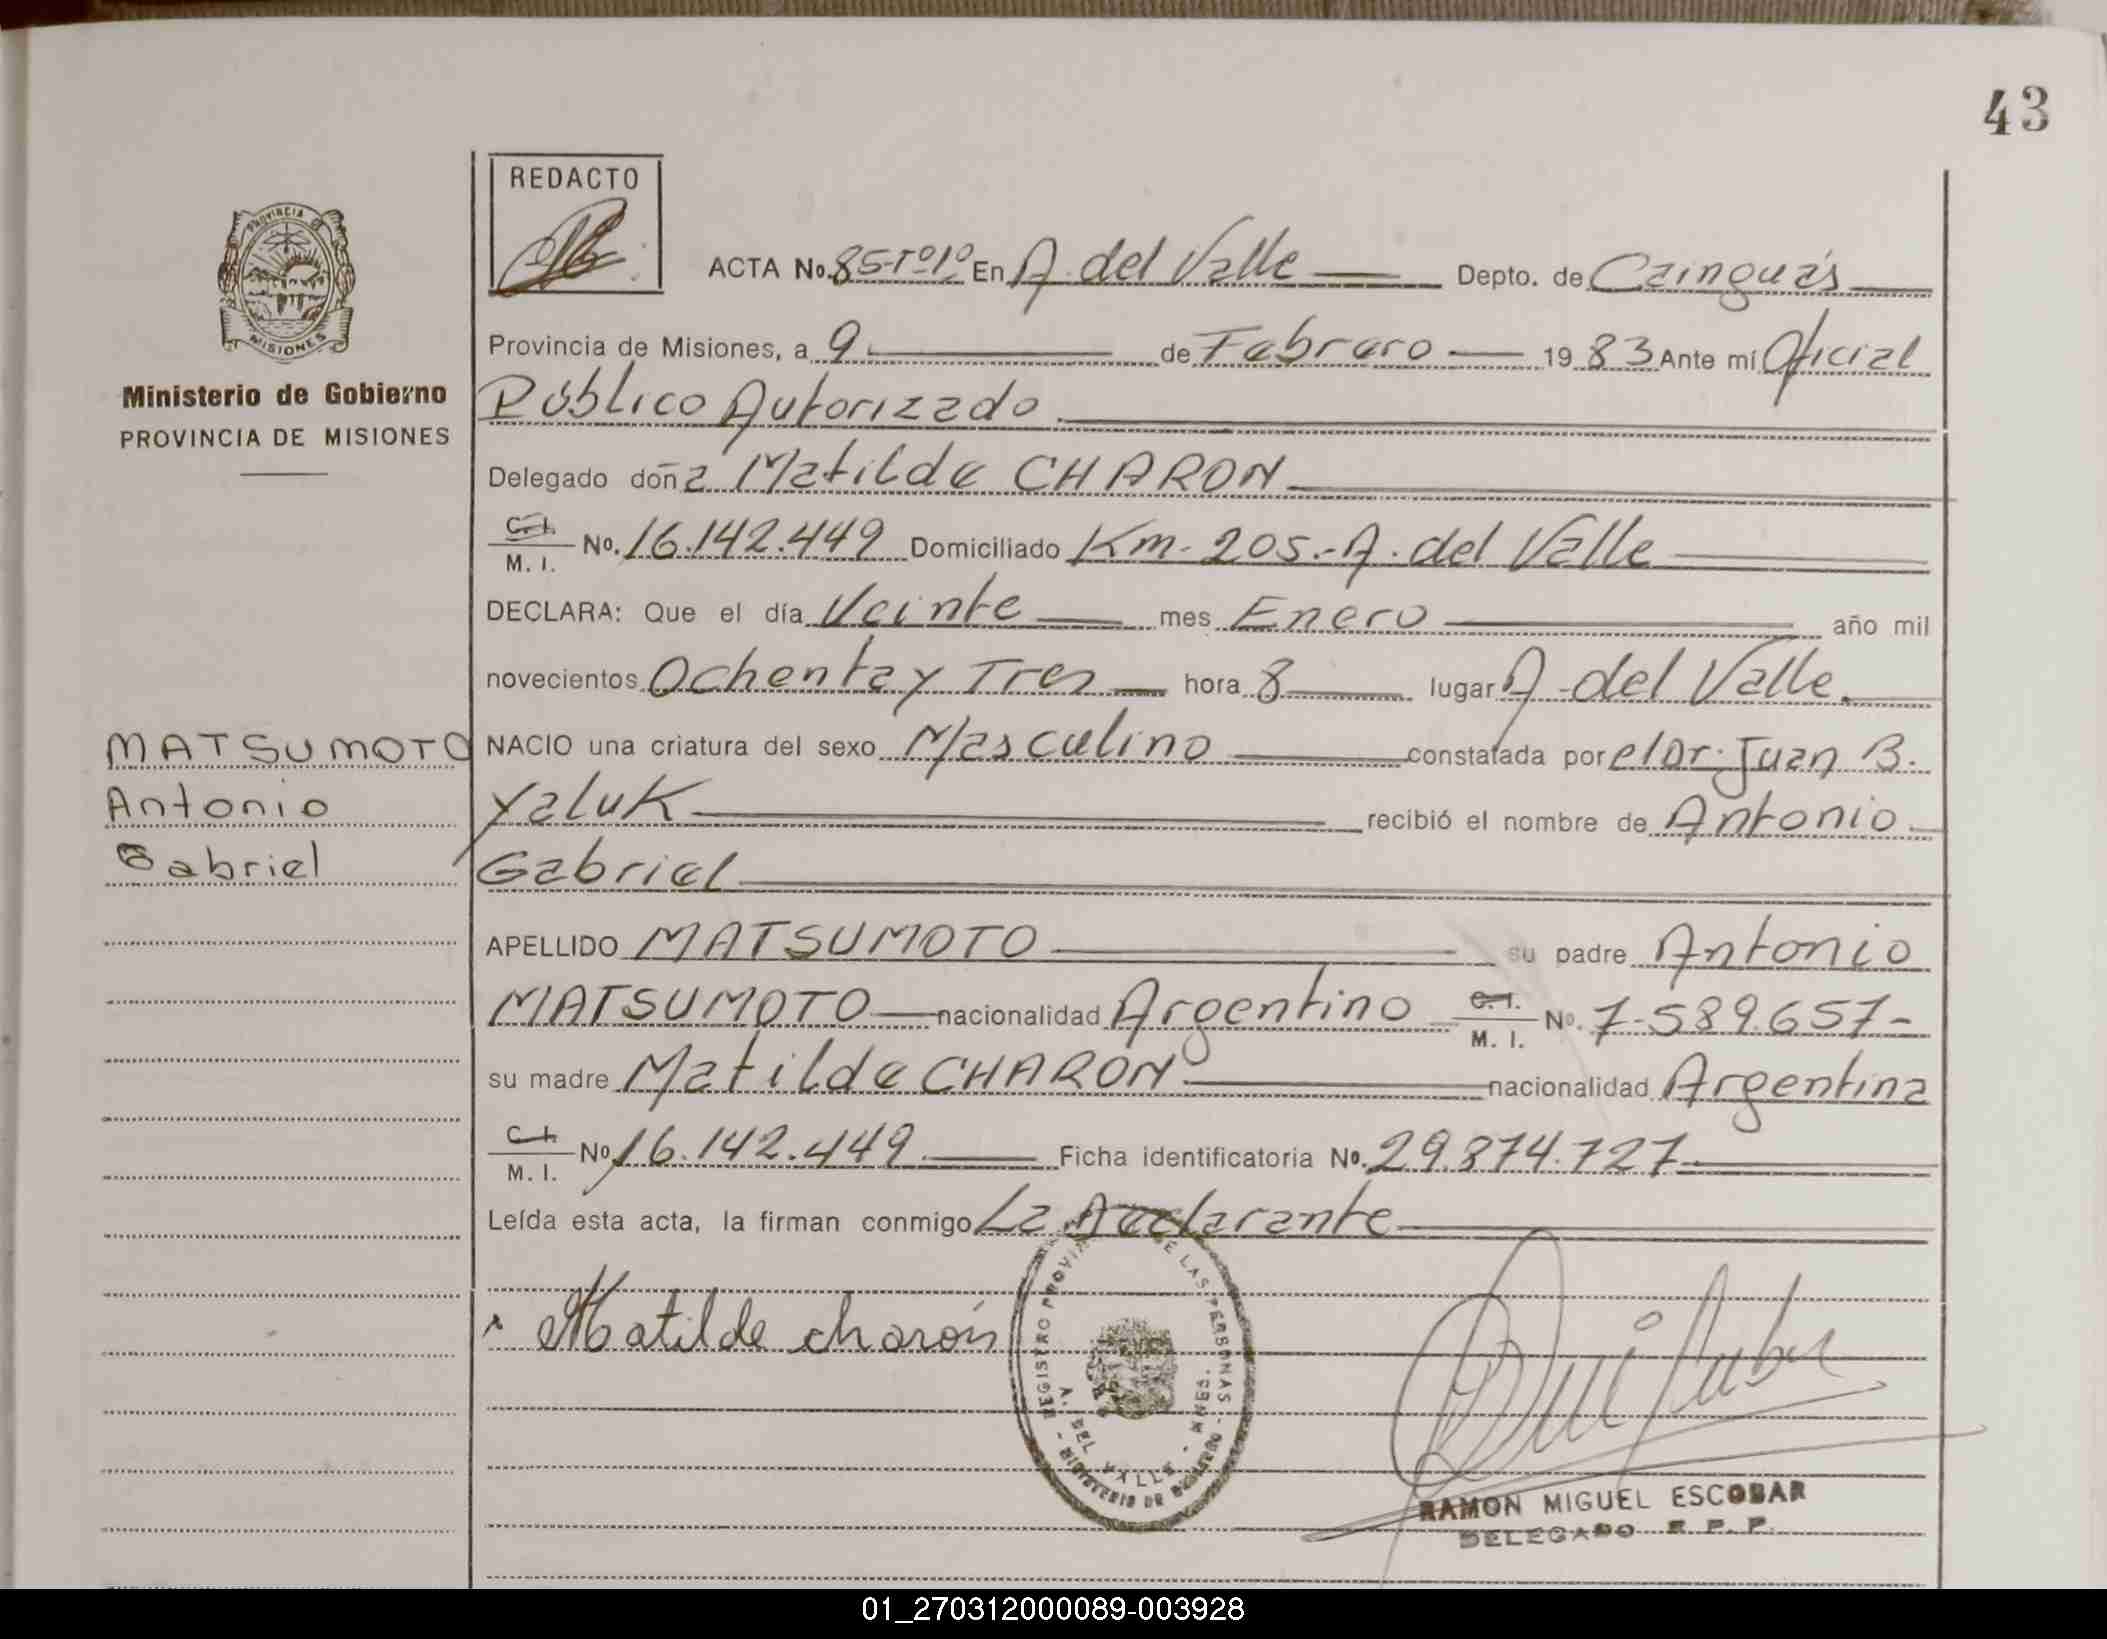 43
REDACTO
PROVINCIA
MISIONES
Ministerio de Gobierno
PROVINCIA DE MISIONES
ACTA No. 85-Tº1º En A. del Valle Depto. de Cainguás
Provincia de Misiones, a 9 de Febrero 1983 Ante mí Oficial
Público Autorizado
Delegado doña Matilde CHARON
C. I. / M. I. No. 16.142.449 Domiciliado Km. 205.- A. del Valle
DECLARA: Que el día Veinte mes Enero año mil
novecientos Ochenta y Tres hora 8 lugar A. del Valle.
MATSUMOTO
Antonio
Gabriel
NACIO una criatura del sexo Masculino constatada por el Dr. Juan B.
Yaluk recibió el nombre de Antonio
Gabriel
APELLIDO MATSUMOTO su padre Antonio
MATSUMOTO nacionalidad Argentino C. I. / M. I. No. 7.589.657-
su madre Matilde CHARON nacionalidad Argentina
C. I. / M. I. No 16.142.449 Ficha identificatoria No. 29.874.727
Leída esta acta, la firman conmigo La Declarante
Matilde charón
REGISTRO PROVIN DE LAS PERSONAS - MINISTERIO DE GOBIERNO
A. DEL VALLE - MNES.
RAMON MIGUEL ESCOBAR
DELEGADO R. P. P.
01_270312000089-003928